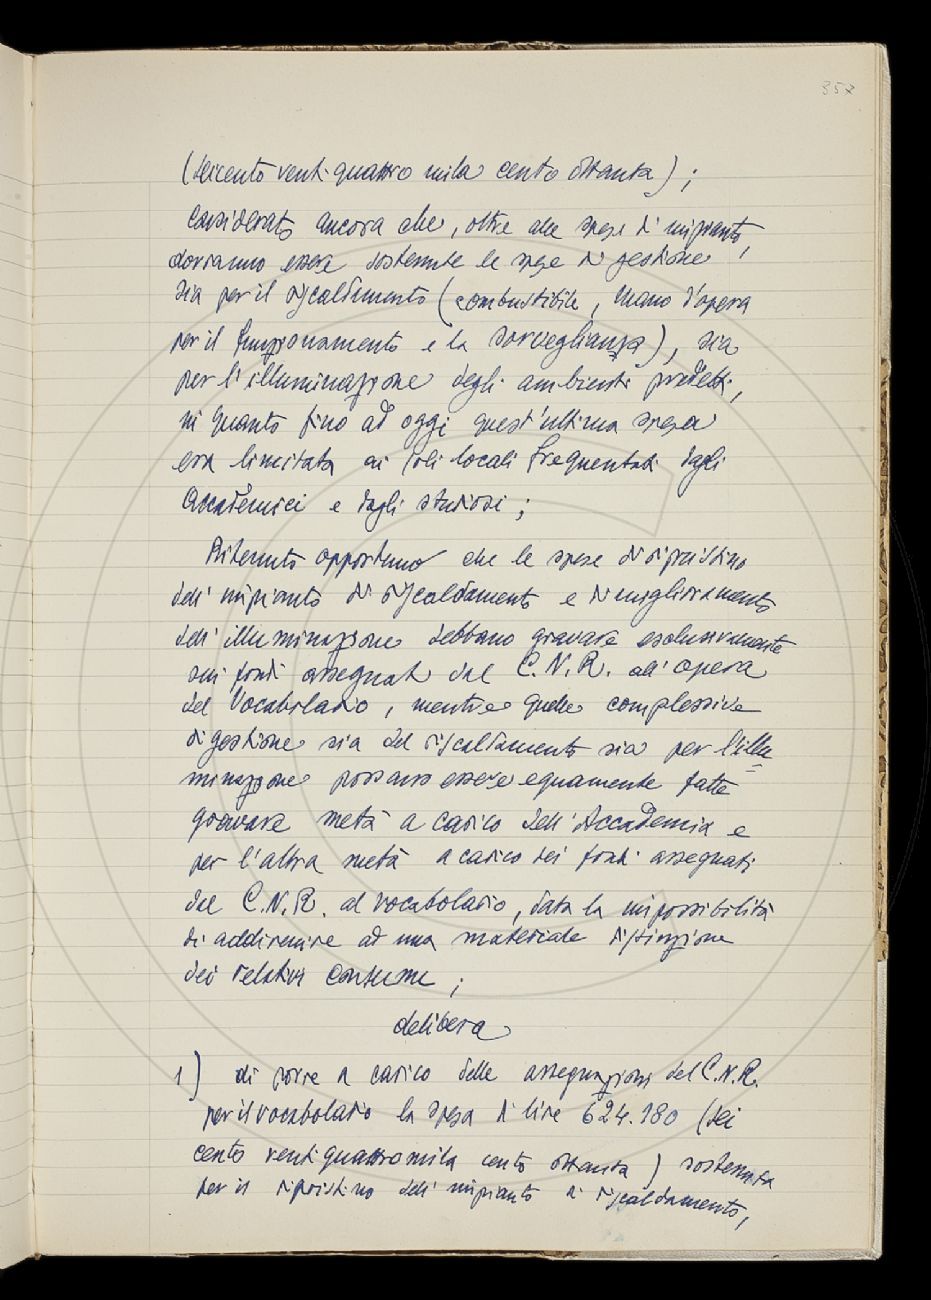 357
(seicento venti quattro mila cento ottanta) ;
Considerato ancora che, oltre alle spese di impianto,
dovranno essere sostenute le spese di gestione
sia per il riscaldamento (combustibile, mano d'opera
per il funzionamento e la sorveglianza), sia
per l'illuminazione degli ambienti predetti,
in quanto fino ad oggi quest'ultima spesa
era limitata ai soli locali frequentati dagli
Accademici e dagli studiosi ;
Ritenuto opportuno che le spese di ripristino
dell'impianto di riscaldamento e di miglioramento
dell'illuminazione debbano gravare esclusivamente
sui fondi assegnati dal C.N.R. all'opera
del Vocabolario, mentre quelle complessive
di gestione sia del riscaldamento sia per l'illu
minazione possano essere equamente fatte
gravare metà a carico dell'Accademia e
per l'altra metà a carico dei fondi assegnati
dal C.N.R. al vocabolario, data la impossibilità
di addivenire ad una materiale distinzione
dei relativi consumi ;
delibera
1) di porre a carico delle assegnazioni del C.N.R.
per il vocabolario la spesa di lire 624.180 (sei
cento venti quattro mila cento ottanta) sostenuta
per il ripristino dell'impianto di riscaldamento,